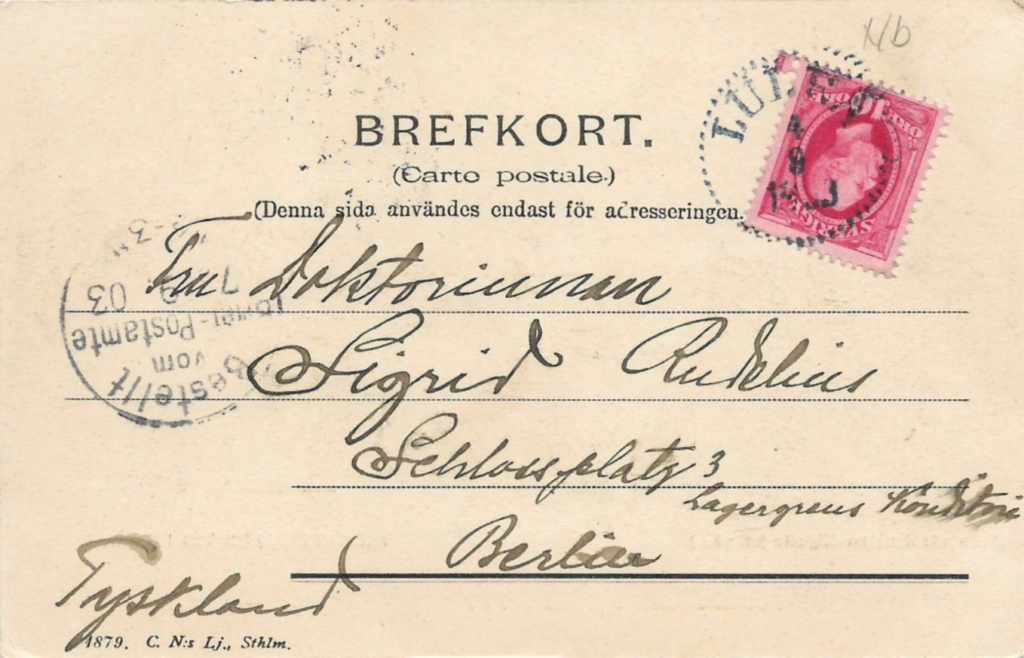 X/b
BREFKORT.
(Carte postale.)
(Denna sida användes endast för adresseringen.
LULEÅ
4
9
SVERIGE
Fru Doktorinnan
Sigrid Rudelius
Schlossplatz 3
Lagergrens Konditori
Berlin
Tyskland
Bestellt
vom
Postamte
7 9 03
1879. C. N:s Lj., Sthlm.